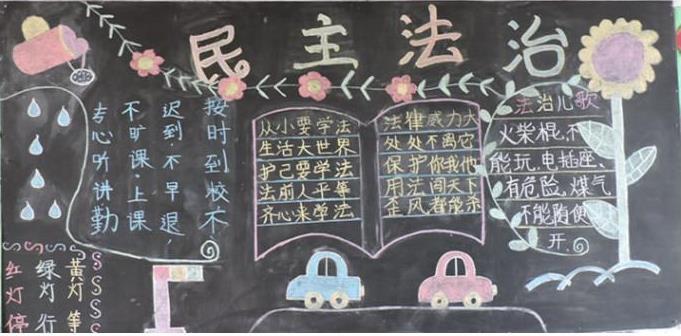 民主法治
按时到校不
迟到·不早退,
不旷课·上课
专心听讲勤
红灯停
绿灯行
黄灯等
从小要学法
生活大世界
护己要学法
法前人平等
齐心来学法
法律威力大
处处不离它
保护你我他
用法闯天下
歪风都能杀
法治儿歌
火柴棍,不
能玩.电插座、
有危险.煤气
不能随便
开.